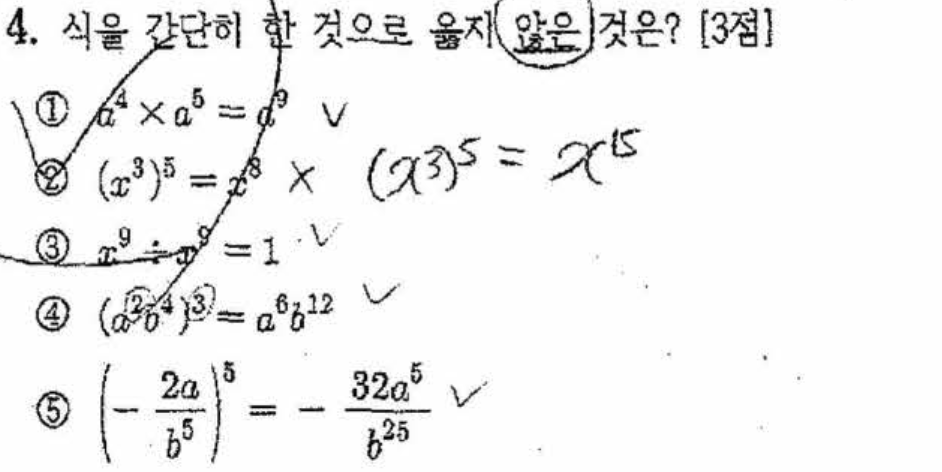 4. 식을 간단히 한 것으로 옳지 않은 것은? [3점]
① a⁴ × a⁵ = a⁹ ✓
② (x³)⁵ = x⁸ × (x³)⁵ = x¹⁵
③ x⁹ ÷ x⁹ = 1 ✓
④ (a²b⁴)³ = a⁶b¹² ✓
⑤ (- 2a/b⁵)⁵ = - 32a⁵/b²⁵ ✓